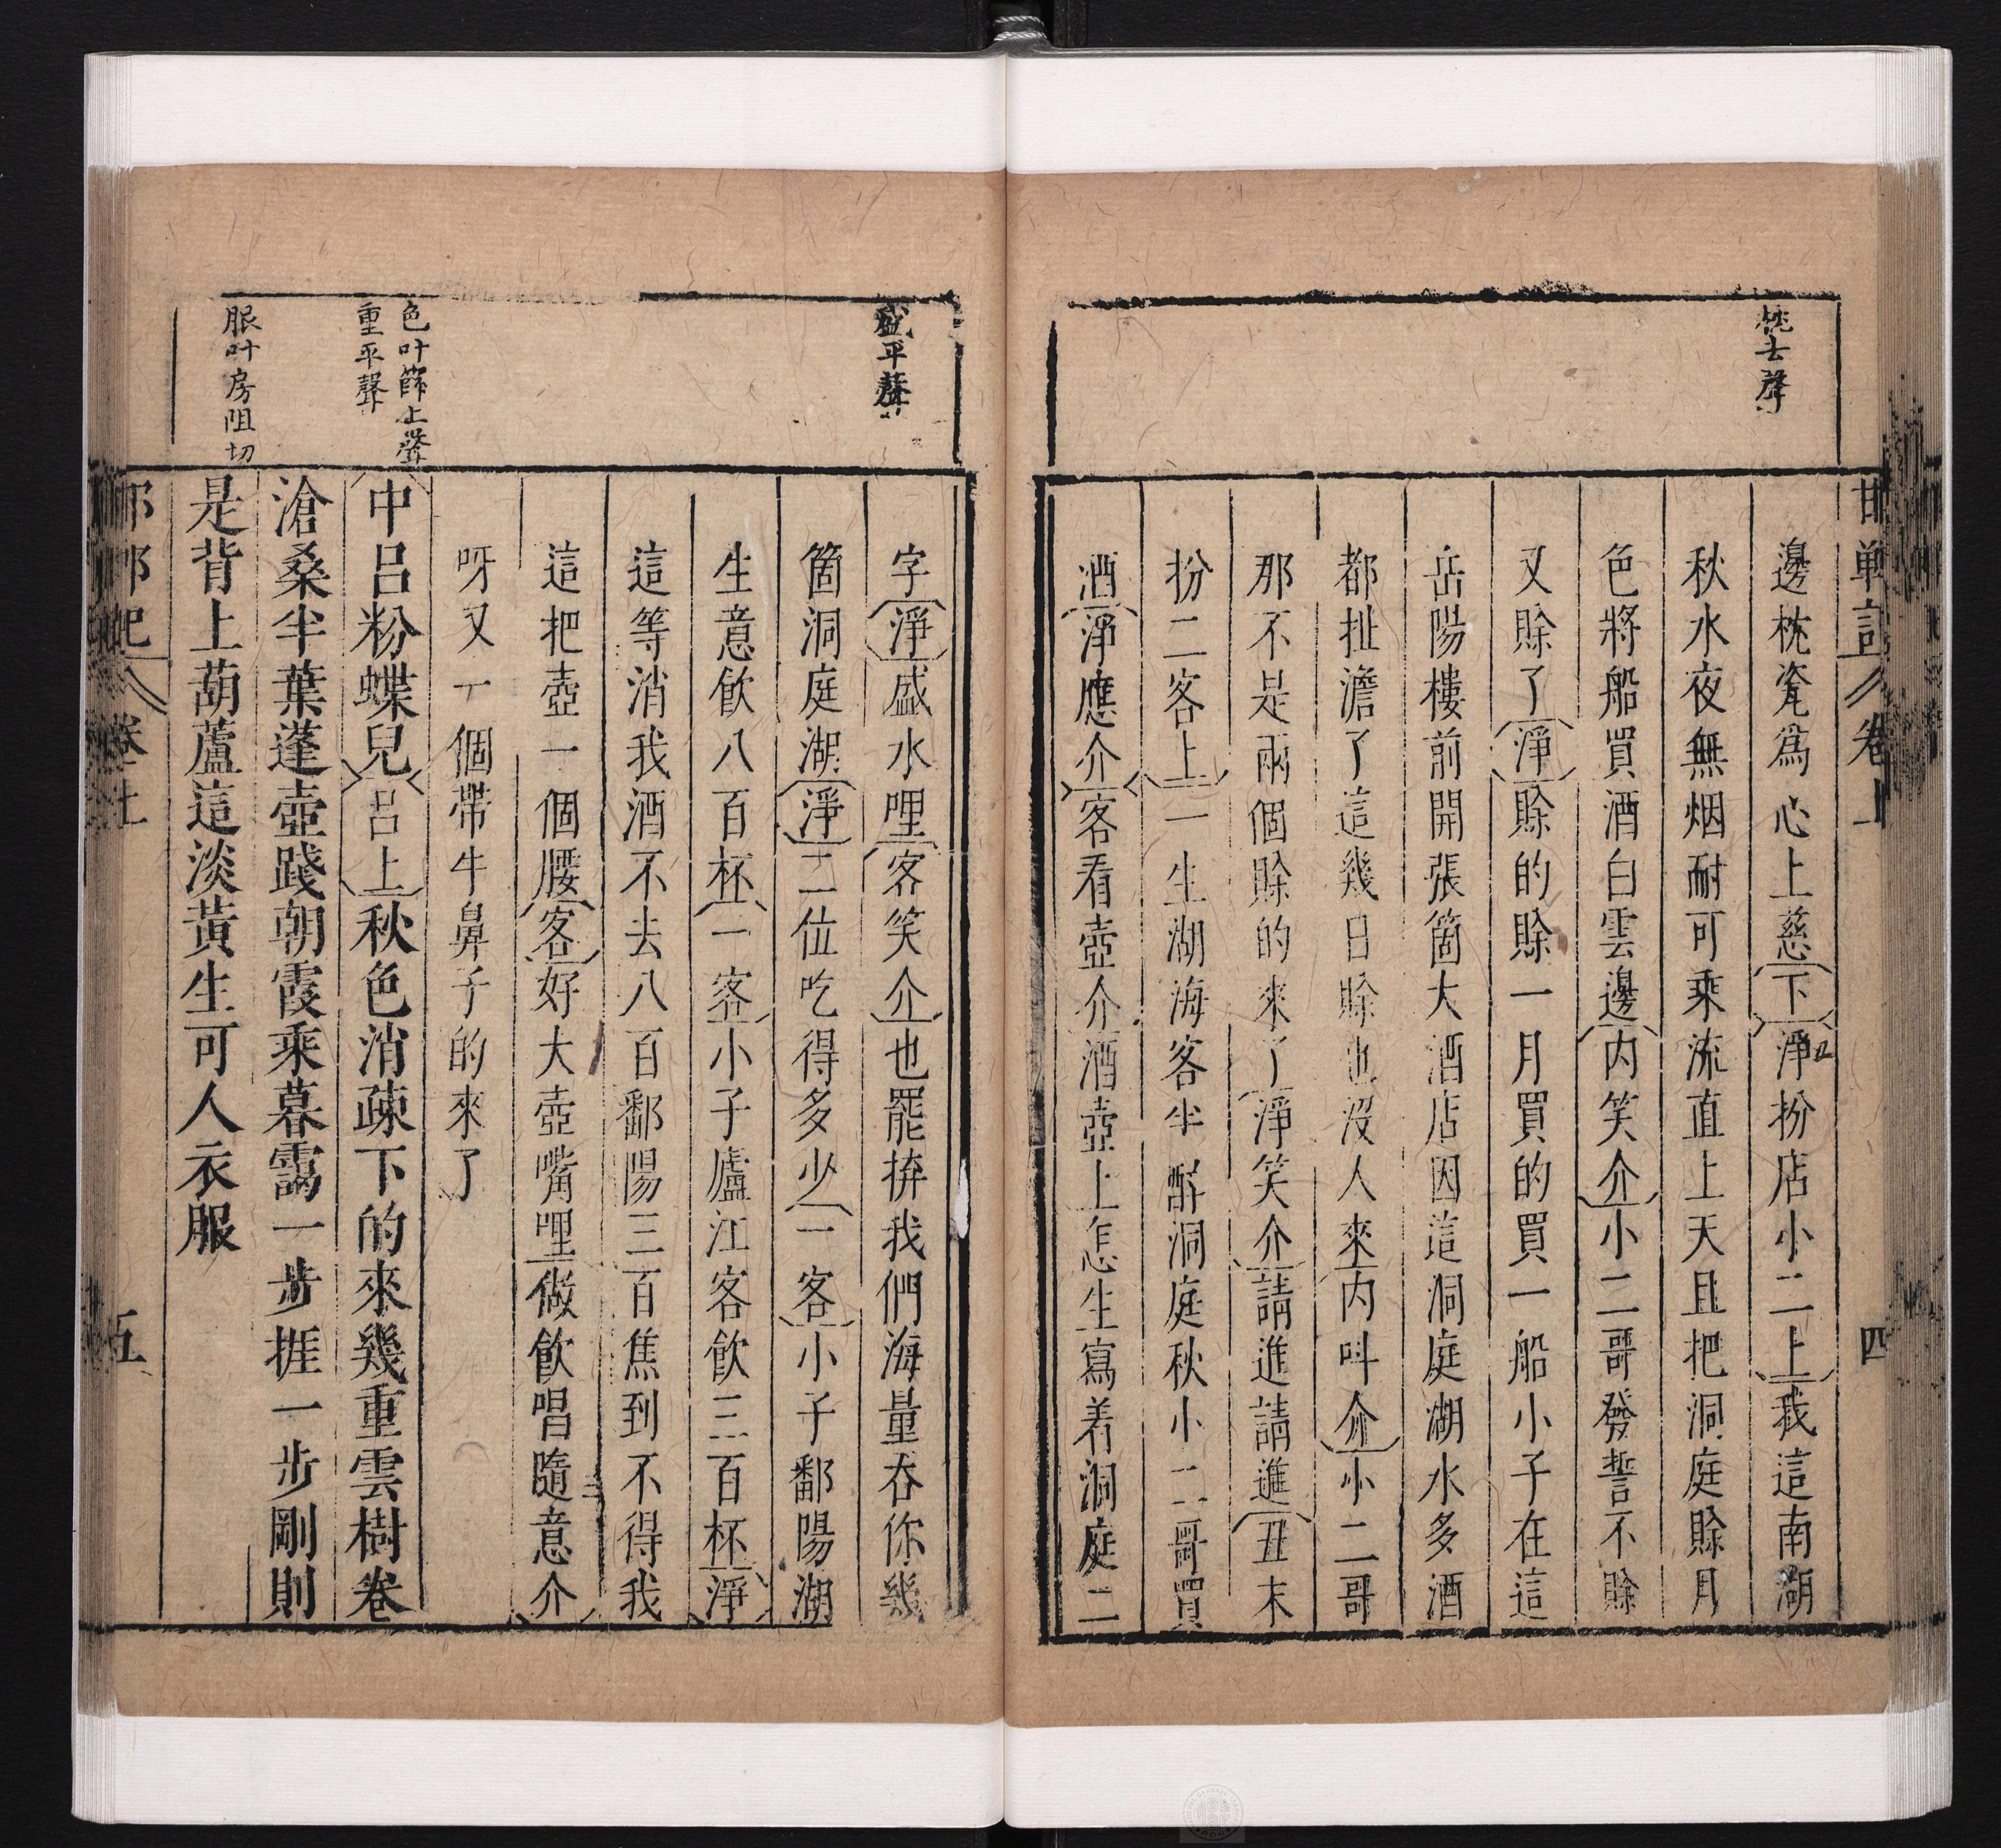 枕去聲
邯鄲記 卷上 四
邊枕瓷爲心上慈下淨丑扮店小二上我這南湖
秋水夜無烟耐可乘流直上天且把洞庭賒月
色將船買酒白雲邊内笑介小二哥發誓不賒
又賒了淨賒的賒一月買的買一船小子在這
岳陽樓前開張箇大酒店因這洞庭湖水多酒
都扯澹了這幾日賒也沒人來内呌介小二哥
那不是兩個賒的來了淨笑介請進請進丑末
扮二客上一生湖海客半醉洞庭秋小二哥買
酒淨應介客看壺介酒壺上怎生寫着洞庭二
盛平聲
色叶篩上聲
重平聲
服叶房阻切
字淨盛水哩客笑介也罷拚我們海量吞你幾
箇洞庭湖淨二位吃得多少一客小子鄱陽湖
生意飲八百杯一客小子廬江客飲三百杯淨
這等消我酒不去八百鄱陽三百焦到不得我
這把壺一個腰客好大壺嘴哩做飲唱隨意介
呀又一個帶牛鼻子的來了
中呂粉蝶兒呂上秋色消疎下的來幾重雲樹卷
滄桑半葉蓬壺踐朝霞乘暮靄一步捱一步剛則
是背上葫蘆這淡黃生可人衣服
邯鄲記 卷上 五